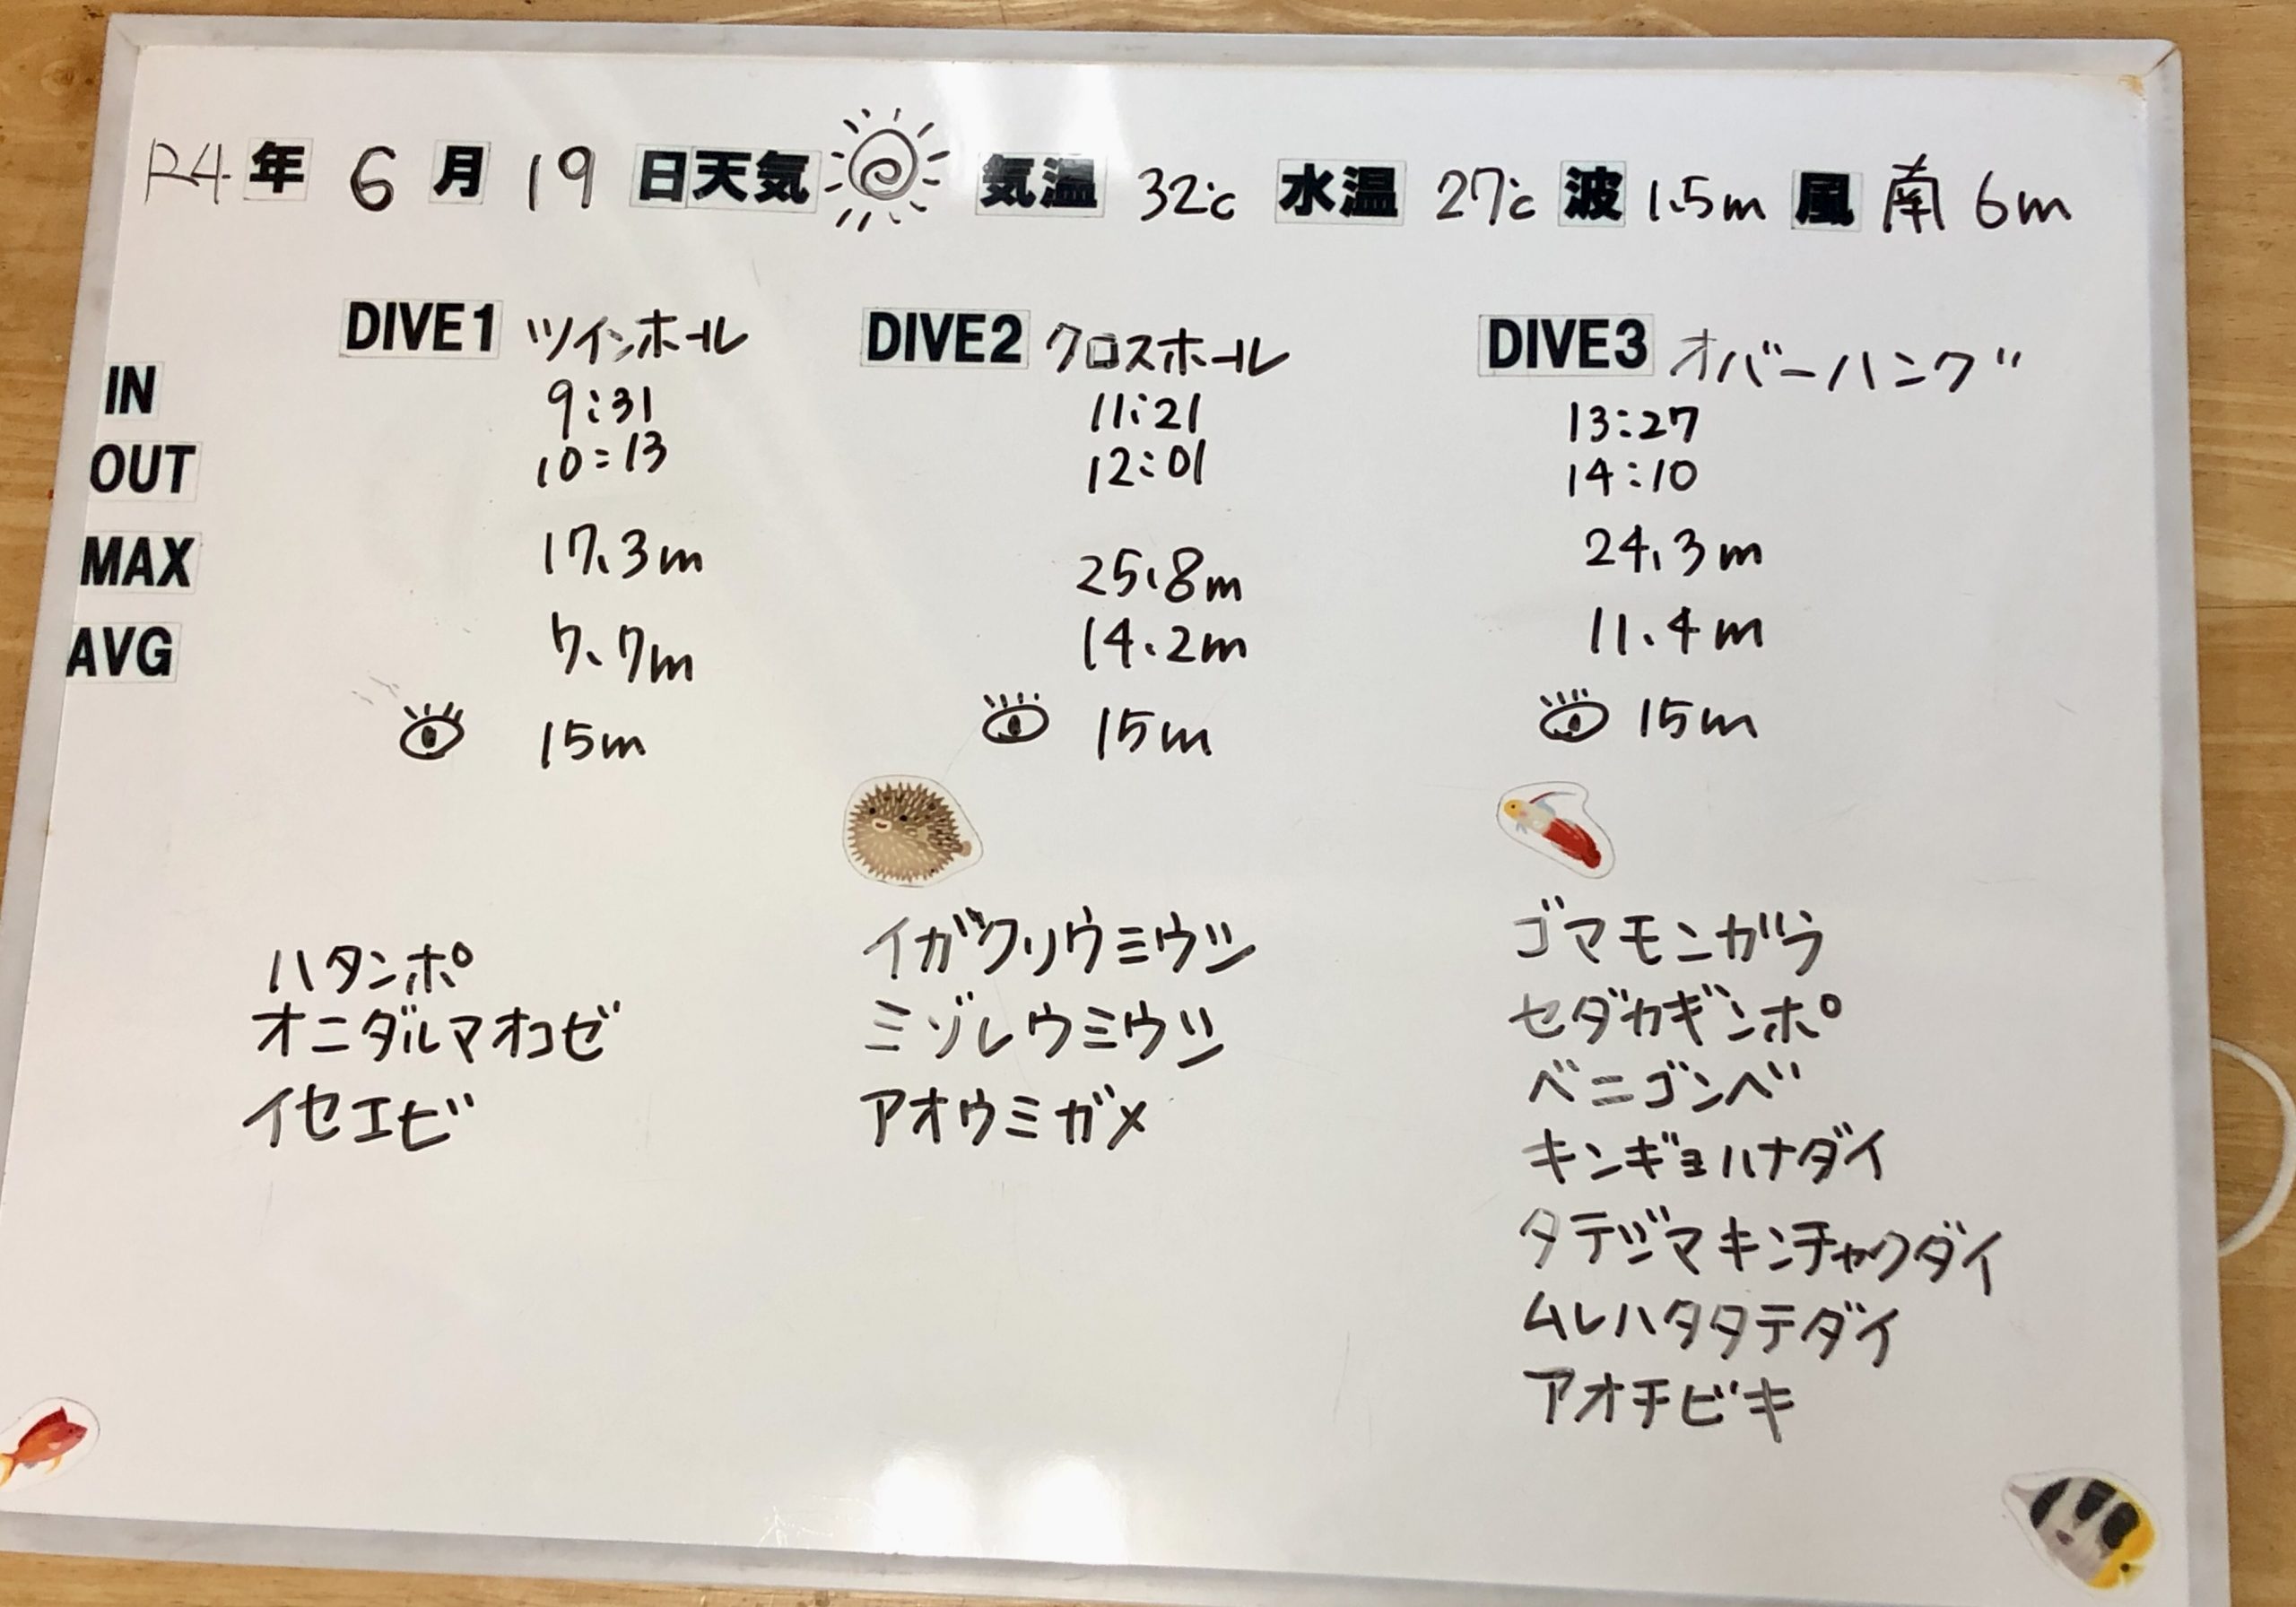 R4年 6月 19日 天気 気温 32℃ 水温 27℃ 波 1.5m 風 南 6m
DIVE1 ツインホール DIVE2 クロスホール DIVE3 オバーハング
IN 9:31 11:21 13:27
OUT 10:13 12:01 14:10
MAX 17.3m 25.8m 24.3m
AVG 7.7m 14.2m 11.4m
15m 15m 15m
ハタンポ
オニダルマオコゼ
イセエビ
イガグリウミウシ
ミゾレウミウシ
アオウミガメ
ゴマモンガラ
セダカギンポ
ベニゴンベ
キンギョハナダイ
タテジマキンチャクダイ
ムレハタタテダイ
アオチビキ